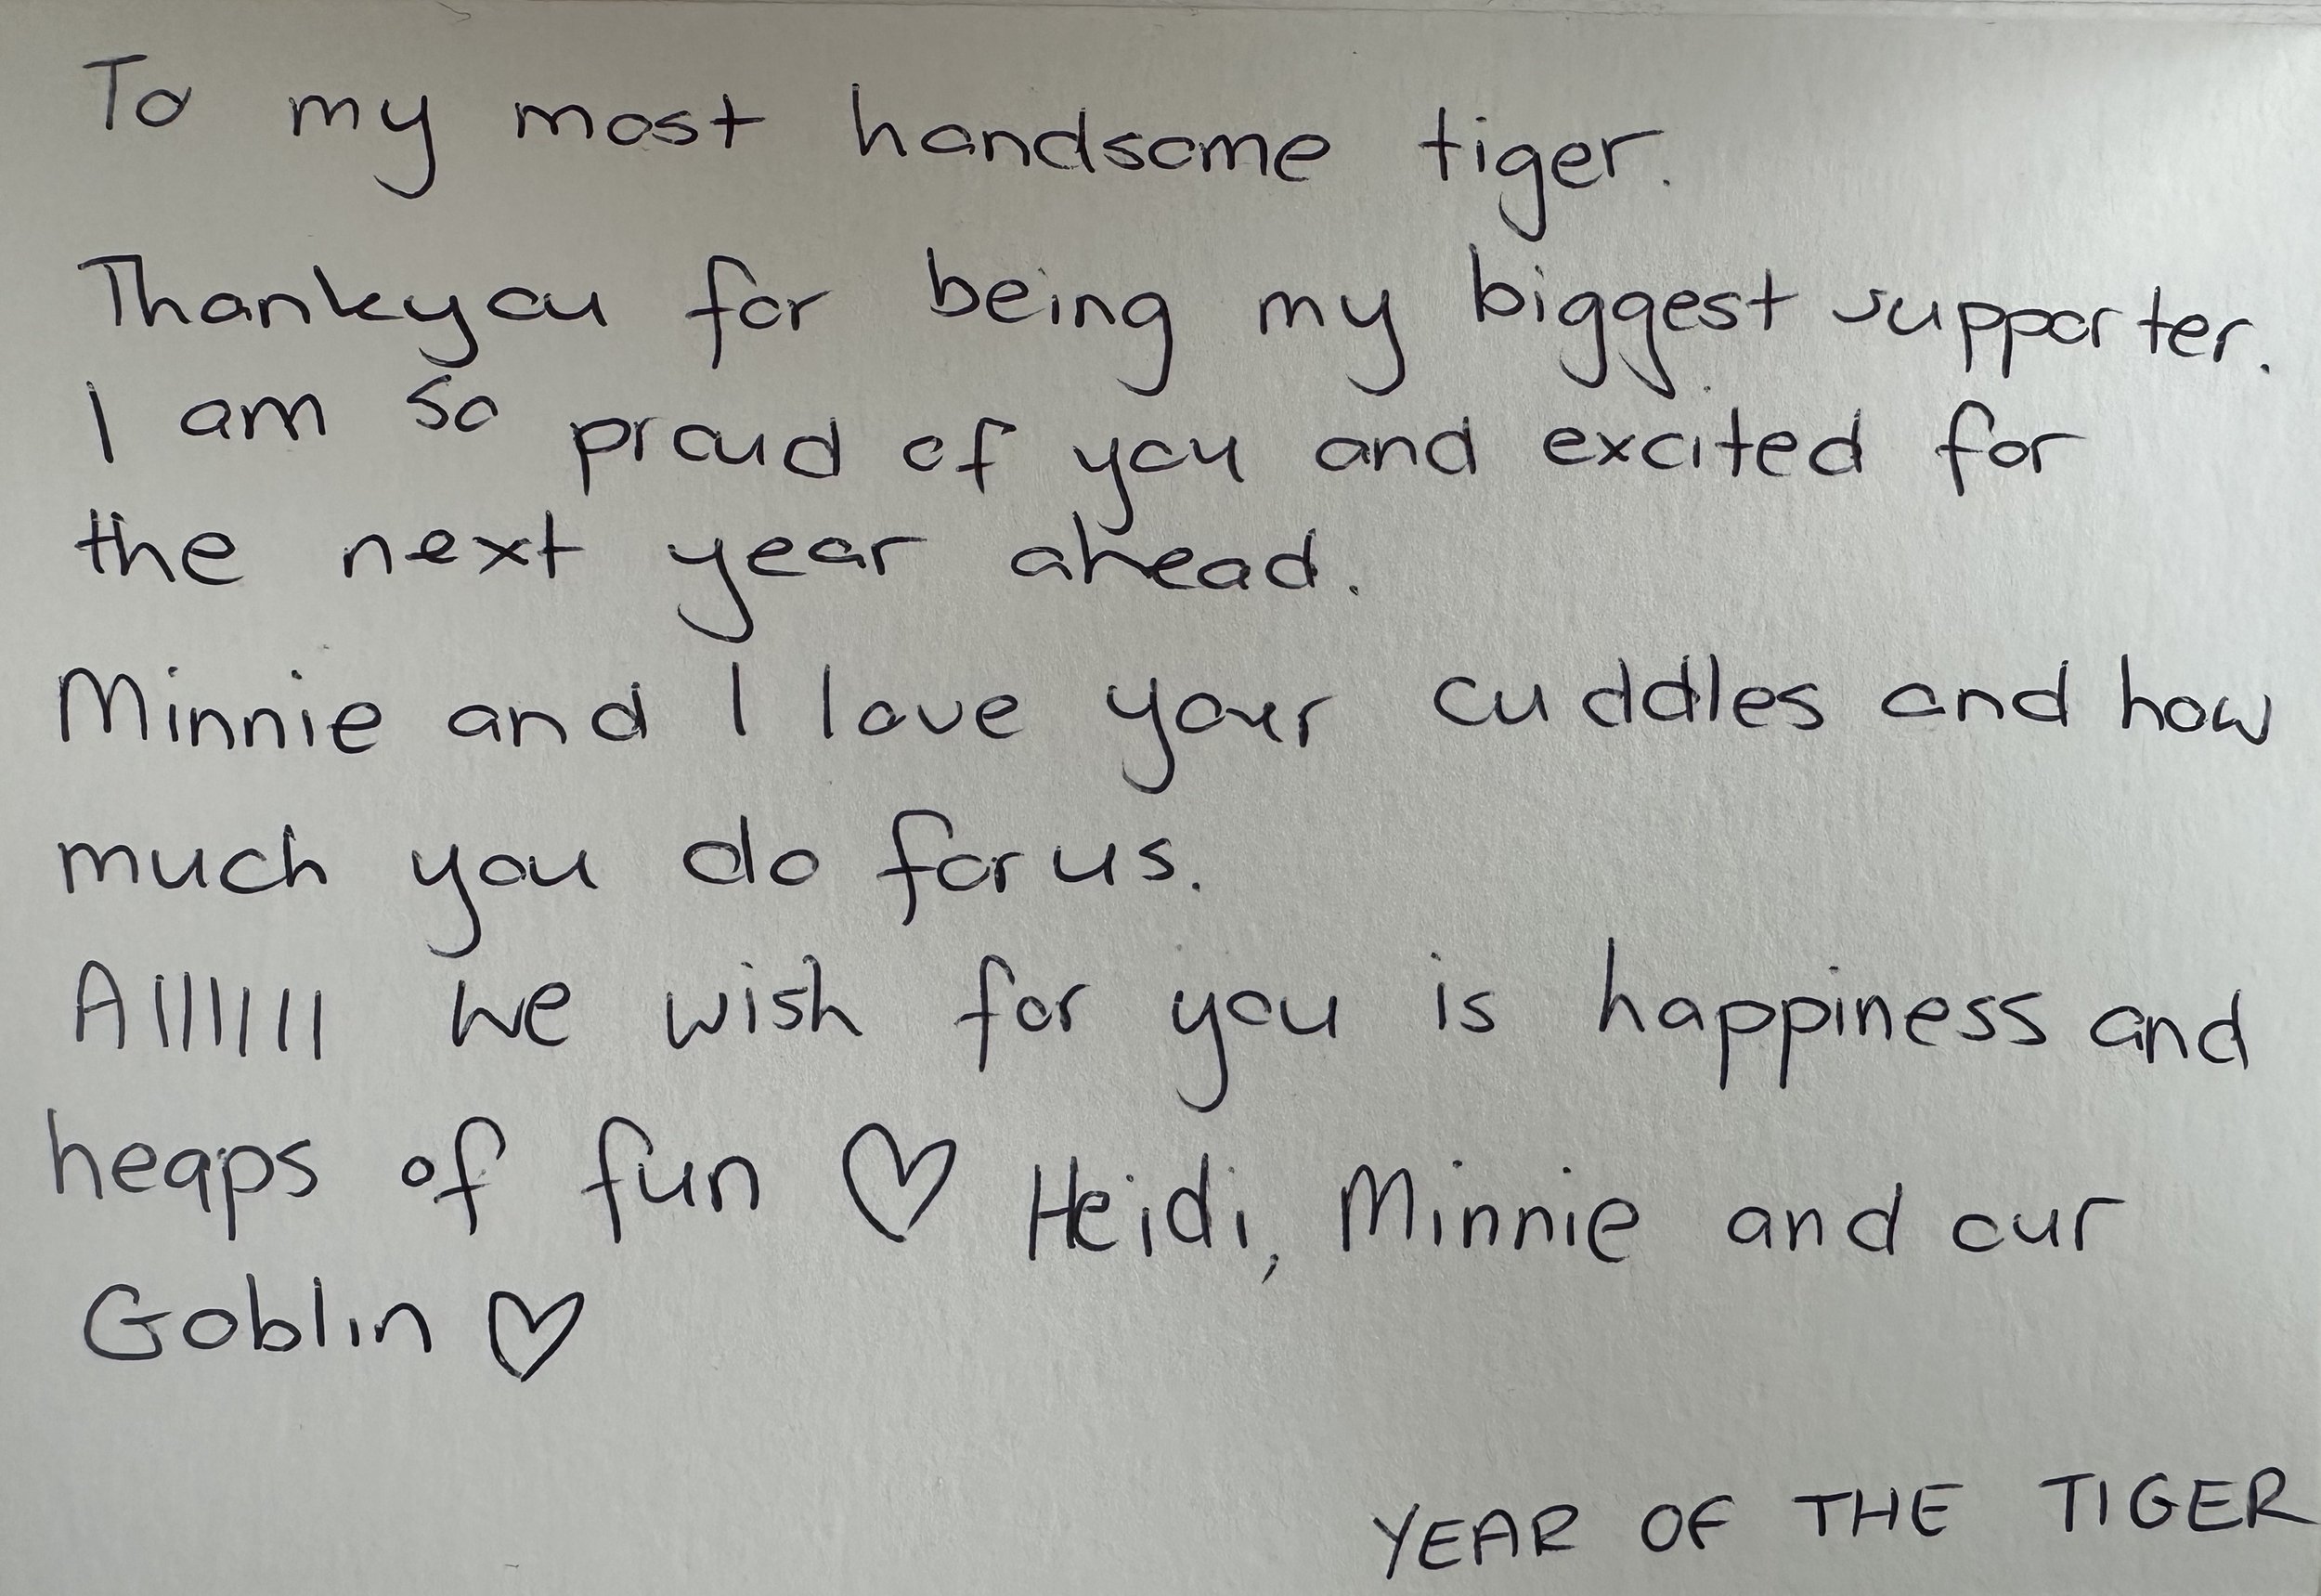 To my most handsome tiger.
Thankyou for being my biggest supporter.
I am so proud of you and excited for
the next year ahead.
Minnie and I love your cuddles and how
much you do for us.
Alllllll we wish for you is happiness and
heaps of fun ♡ Heidi, Minnie and our
Goblin ♡
YEAR OF THE TIGER